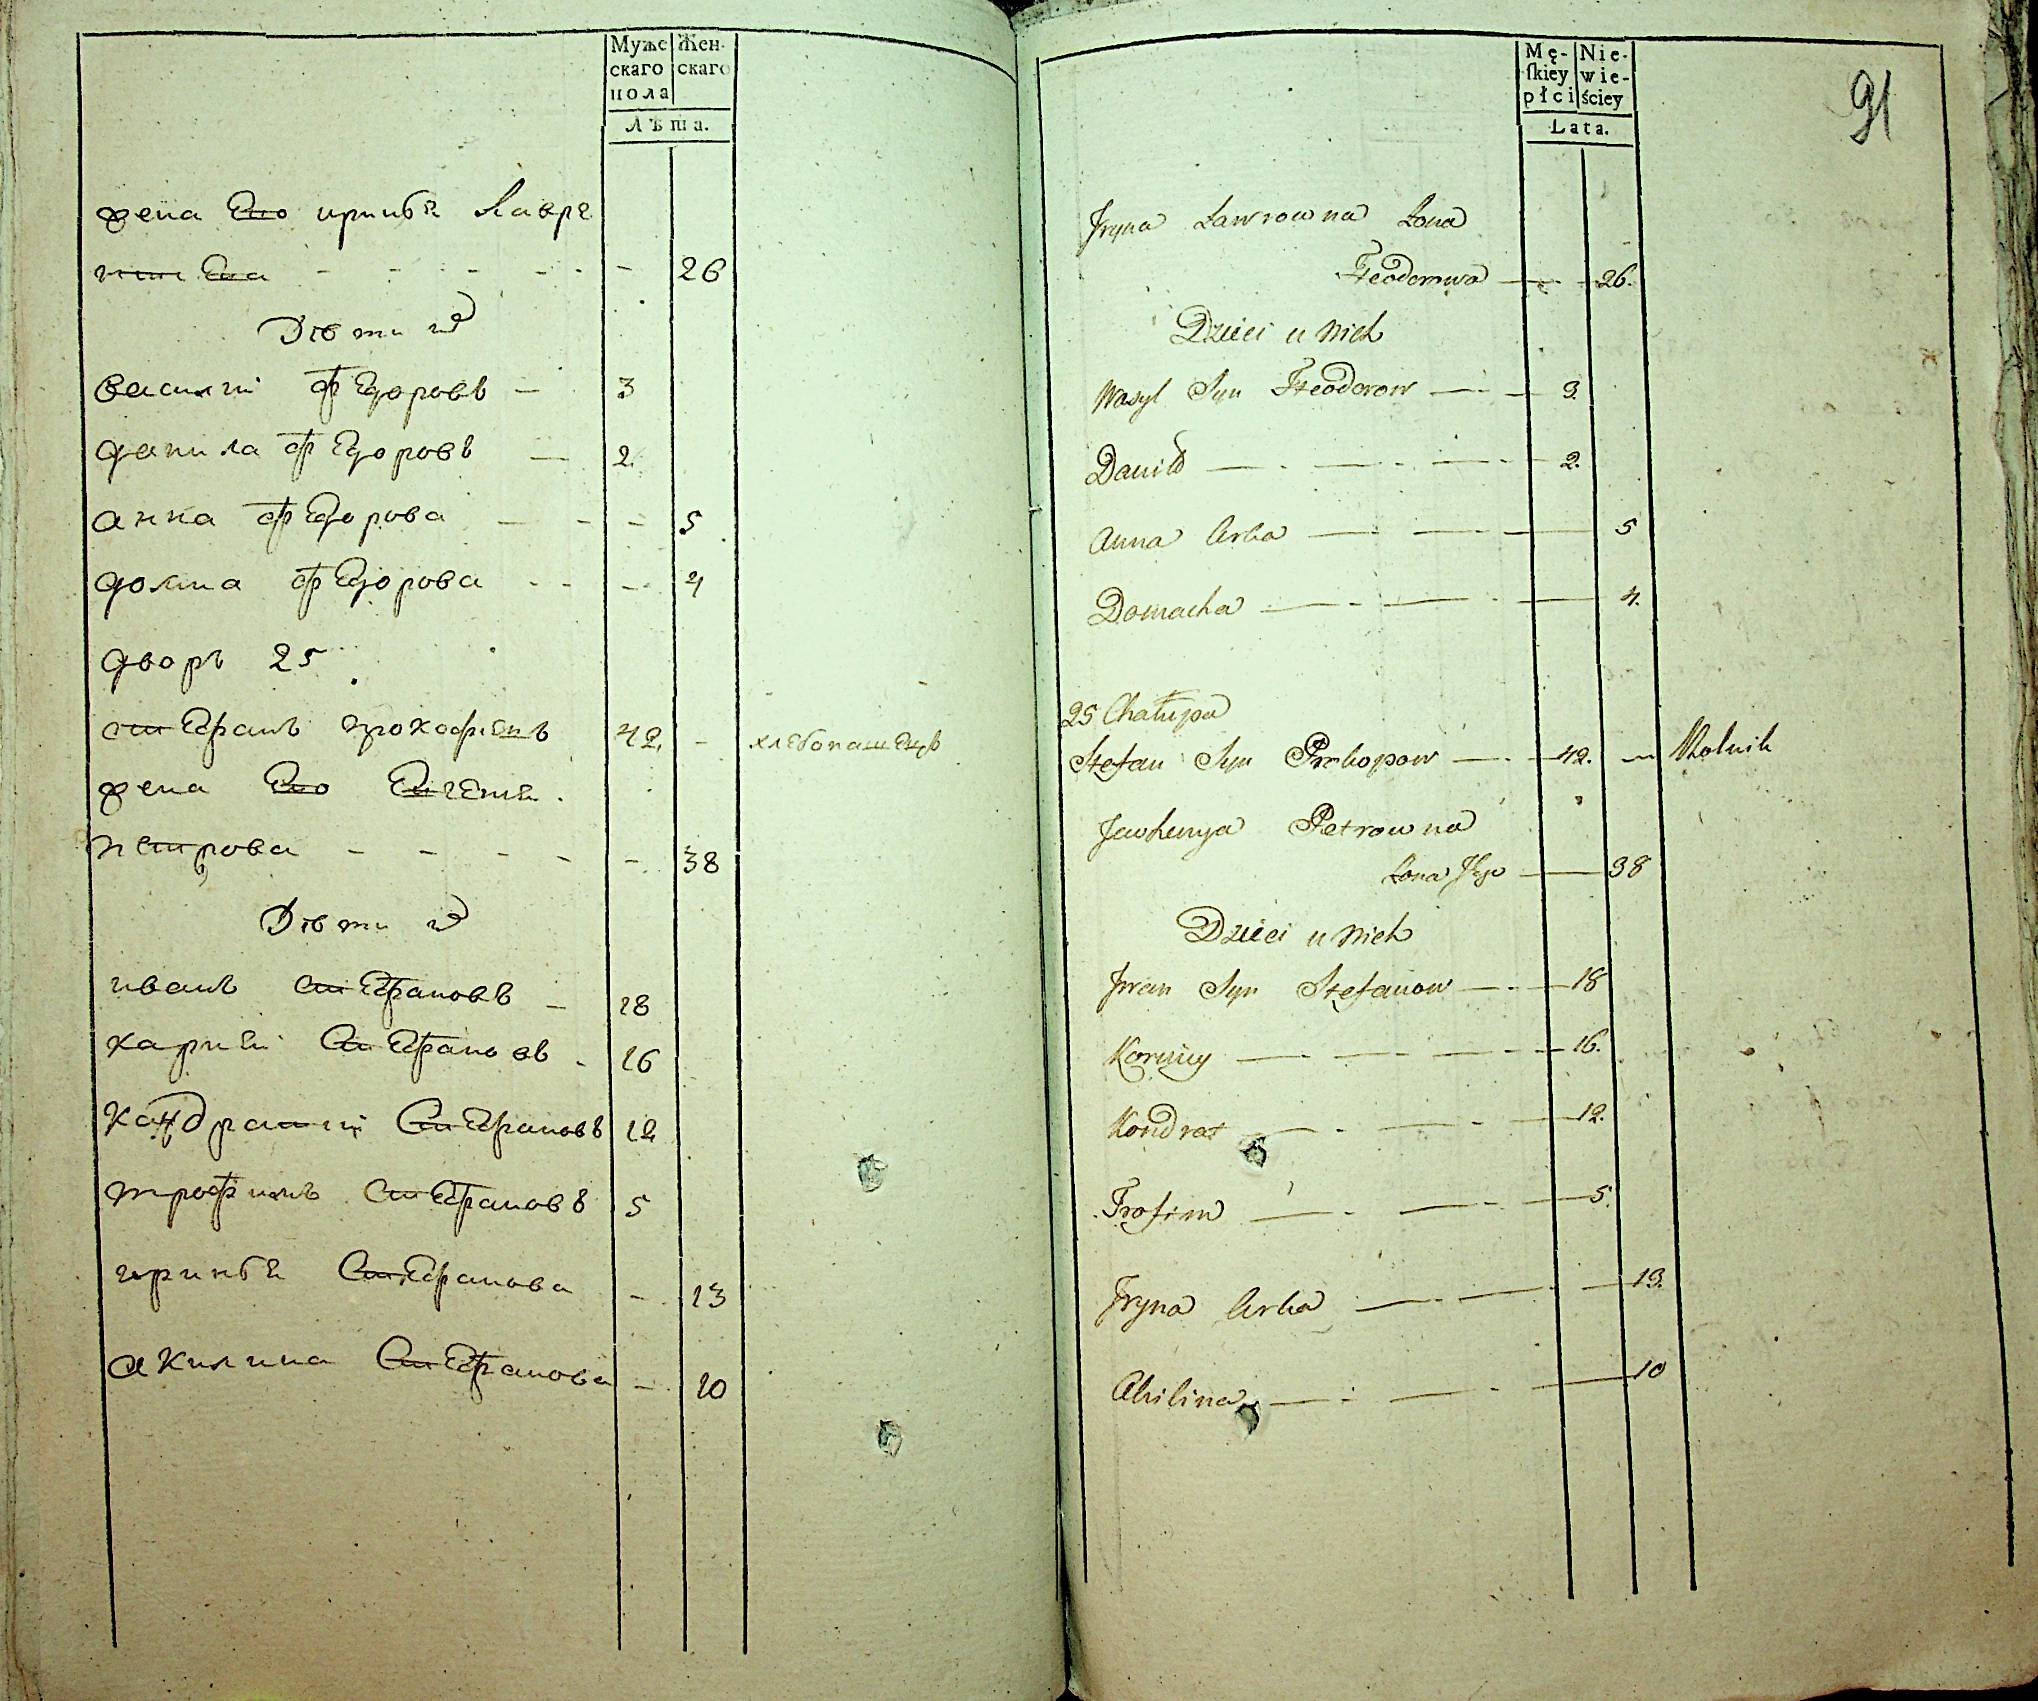 Муже
скаго
пола
Жен-
скаго
Лѣта.
жена Его ирины Лавре
нтиЕва - - - - - - 26
Дѣти их
василій фЕдоровъ - 3
данила фЕдоровъ - 2.
анна фЕдорова - - - 5
домна фЕдорова - - - 4
дворъ 25
стЕфанъ прокофіевъ 42. - хлебопашЕцъ
жена Его ЕвгЕния.
пЕтрова - - - - - 38
Дѣти их
иванъ СтЕфановъ - 18
харитїй СтЕфановъ - 16
кандратій СтЕфановъ 12
трофимъ СтЕфановъ 5
ирины СтЕфанова - 13
акилина СтЕфанова - 10
Mę-
ſkiey
płci
Nie-
wie-
ściey
Lata.
91
Jryna Ławrowna Żona
Fteodorowa — 26.
Dzieci u nich
Wasyl Syn Fteodorow — 3.
Daniło — 2.
Anna Corka — 5
Domacha — 4.
25 Chałupa
Stefan Syn Prokopow — 42. — Rolnik
Jewhenya Petrowna
Żona Jego — 38
Dzieci u nich
Jwan Syn Stefanow — 18
Korniy — 16.
Kondrat — 12.
Trofim — 5.
Jryna Corka — 13.
Akilina — 10